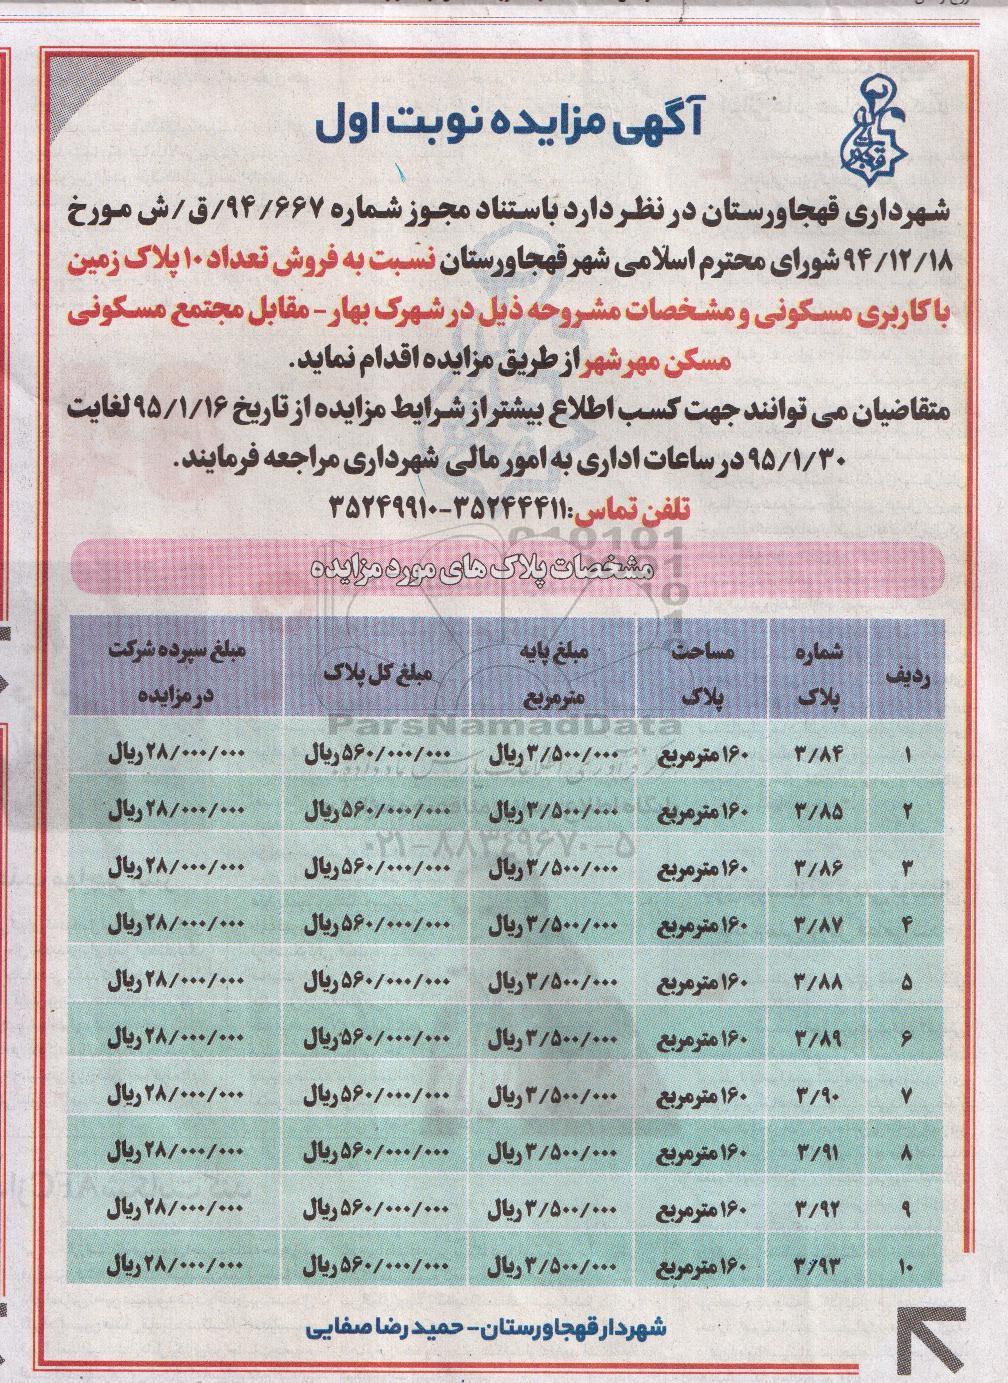 آگهی مزایده نوبت اول
شهرداری قهجاورستان در نظر دارد باستناد مجوز شماره ۹۴/۶۶۷/ق/ش مورخ
۹۴/۱۲/۱۸ شورای محترم اسلامی شهر قهجاورستان نسبت به فروش تعداد ۱۰ پلاک زمین
با کاربری مسکونی و مشخصات مشروحه ذیل در شهرک بهار - مقابل مجتمع مسکونی
مسکن مهر شهر از طریق مزایده اقدام نماید.
متقاضیان می توانند جهت کسب اطلاع بیشتر از شرایط مزایده از تاریخ ۹۵/۱/۱۶ لغایت
۹۵/۱/۳۰ در ساعات اداری به امور مالی شهرداری مراجعه فرمایند.
تلفن تماس: ۳۵۲۴۴۴۱۱-۳۵۲۴۹۹۱۰
مشخصات پلاک های مورد مزایده
ردیف شماره پلاک مساحت پلاک مبلغ پایه مترمربع مبلغ کل پلاک مبلغ سپرده شرکت در مزایده
۱ ۳/۸۴ ۱۶۰ مترمربع ۳/۵۰۰/۰۰۰ ریال ۵۶۰/۰۰۰/۰۰۰ ریال ۲۸/۰۰۰/۰۰۰ ریال
۲ ۳/۸۵ ۱۶۰ مترمربع ۳/۵۰۰/۰۰۰ ریال ۵۶۰/۰۰۰/۰۰۰ ریال ۲۸/۰۰۰/۰۰۰ ریال
۳ ۳/۸۶ ۱۶۰ مترمربع ۳/۵۰۰/۰۰۰ ریال ۵۶۰/۰۰۰/۰۰۰ ریال ۲۸/۰۰۰/۰۰۰ ریال
۴ ۳/۸۷ ۱۶۰ مترمربع ۳/۵۰۰/۰۰۰ ریال ۵۶۰/۰۰۰/۰۰۰ ریال ۲۸/۰۰۰/۰۰۰ ریال
۵ ۳/۸۸ ۱۶۰ مترمربع ۳/۵۰۰/۰۰۰ ریال ۵۶۰/۰۰۰/۰۰۰ ریال ۲۸/۰۰۰/۰۰۰ ریال
۶ ۳/۸۹ ۱۶۰ مترمربع ۳/۵۰۰/۰۰۰ ریال ۵۶۰/۰۰۰/۰۰۰ ریال ۲۸/۰۰۰/۰۰۰ ریال
۷ ۳/۹۰ ۱۶۰ مترمربع ۳/۵۰۰/۰۰۰ ریال ۵۶۰/۰۰۰/۰۰۰ ریال ۲۸/۰۰۰/۰۰۰ ریال
۸ ۳/۹۱ ۱۶۰ مترمربع ۳/۵۰۰/۰۰۰ ریال ۵۶۰/۰۰۰/۰۰۰ ریال ۲۸/۰۰۰/۰۰۰ ریال
۹ ۳/۹۲ ۱۶۰ مترمربع ۳/۵۰۰/۰۰۰ ریال ۵۶۰/۰۰۰/۰۰۰ ریال ۲۸/۰۰۰/۰۰۰ ریال
۱۰ ۳/۹۳ ۱۶۰ مترمربع ۳/۵۰۰/۰۰۰ ریال ۵۶۰/۰۰۰/۰۰۰ ریال ۲۸/۰۰۰/۰۰۰ ریال
شهردار قهجاورستان - حمید رضا صفایی
ParsNamadData
۰۲۱-۸۸۳۴۹۶۷۰-۵